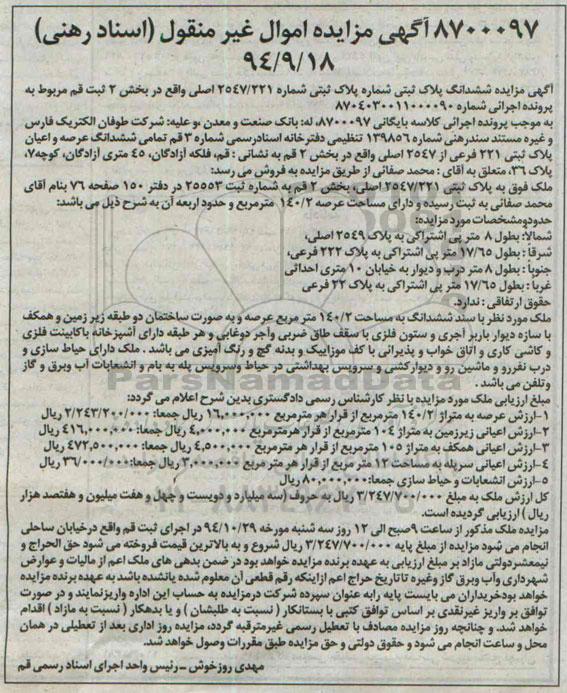 ۸۷۰۰۰۹۷ آگهی مزایده اموال غیر منقول (اسناد رهنی)
۹۴/۹/۱۸
آگهی مزایده ششدانگ پلاک ثبتی شماره پلاک ثبتی شماره ۲۵۴۷/۲۲۱ اصلی واقع در بخش ۲ ثبت قم مربوط به
پرونده اجرائی شماره ۸۷۰۴۰۳۰۰۱۱۰۰۰۰۹۰
به موجب پرونده اجرائی کلاسه بایگانی ۸۷۰۰۰۹۷، له: بانک صنعت و معدن ،و علیه: شرکت طوفان الکتریک فارس
و غیره مستند سندرهنی شماره ۱۳۹۸۵۶ تنظیمی دفترخانه اسنادرسمی شماره ۳ قم تمامی ششدانگ عرصه و اعیان
پلاک ثبتی ۲۲۱ فرعی از ۲۵۴۷ اصلی واقع در بخش ۲ قم به نشانی : قم، فلکه آزادگان، ۴۵ متری آزادگان، کوچه۷،
پلاک ۳۶، متعلق به آقای : محمد صفائی از طریق مزایده به فروش می رسد:
ملک فوق به پلاک ثبتی ۲۵۴۷/۲۲۱ اصلی، بخش ۲ قم به شماره ثبت ۲۵۵۵۳ در دفتر ۱۵۰ صفحه ۷۶ بنام آقای
محمد صفائی به ثبت رسیده و دارای مساحت عرصه ۱۴۰/۲ مترمربع و حدود اربعه آن به شرح ذیل می باشد:
حدودومشخصات مورد مزایده:
شمالاً: بطول ۸ متر پی اشتراکی به پلاک ۲۵۴۹ اصلی،
شرقاً : بطول ۱۷/۶۵ متر پی اشتراکی به پلاک ۲۲۲ فرعی،
جنوباً : بطول ۸ متر درب و دیوار به خیابان ۱۰ متری احداثی
غربا : بطول ۱۷/۶۵ متر پی اشتراکی به پلاک ۲۲ فرعی
حقوق ارتفاقی : ندارد.
ملک مورد نظر با سند ششدانگ به مساحت ۱۴۰/۲ متر مربع عرصه و به صورت ساختمان دو طبقه زیر زمین و همکف
با سازه دیوار باربر آجری و ستون فلزی با سقف طاق ضربی وآجر دوغابی و هر طبقه دارای آشپزخانه باکابینت فلزی
و کاشی کاری و اتاق خواب و پذیرانی با کف موزاییک و بدنه گچ و رنگ آمیزی می باشد . ملک دارای حیاط سازی و
درب نفررو و ماشین رو و دیوارکشی و سرویس بهداشتی در حیاط وسرویس پله به بام و انشعابات آب وبرق و گاز
وتلفن می باشد .
مبلغ ارزیابی ملک مورد مزایده با نظر کارشناس رسمی دادگستری بدین شرح اعلام می گردد:
۱-ارزش عرصه به متراژ ۱۴۰/۲ مترمربع از قرار هر مترمربع ۱۶,۰۰۰,۰۰۰ ریال جمعا: ۲/۲۴۳/۲۰۰/۰۰۰ ریال
۲-ارزش اعیانی زیرزمین به متراژ ۱۰۴ مترمربع از قرار هرمترمربع ۴,۰۰۰,۰۰۰ ریال جمعا: ۴۱۶,۰۰۰,۰۰۰ ریال
۳-ارزش اعیانی همکف به متراژ ۱۰۵ مترمربع از قرار هر مترمربع ۴,۵۰۰,۰۰۰ ریال جمعا: ۴۷۲,۵۰۰,۰۰۰ ریال
۴-ارزش اعیانی سرپله به مساحت ۱۲ متر مربع از قرار هر متر مربع ۳,۰۰۰,۰۰۰ ریال جمعا: ۳۶/۰۰۰/۰۰۰ ریال
۵-ارزش انشعابات و حیاط سازی ۸۰,۰۰۰,۰۰۰ریال
کل ارزش ملک به مبلغ ۳/۲۴۷/۷۰۰/۰۰۰ ریال به حروف (سه میلیارد و دویست و چهل و هفت میلیون و هفتصد هزار
ریال ) ارزیابی گردیده است.
مزایده ملک مذکور از ساعت ۹صبح الی ۱۲ روز سه شنبه مورخه ۹۴/۱۰/۲۹ در اجرای ثبت قم واقع درخیابان ساحلی
انجام می شود مزایده از مبلغ پایه ۳/۲۴۷/۷۰۰/۰۰۰ ریال شروع و به بالاترین قیمت فروخته می شود حق الحراج و
نیمعشردولتی مازاد بر مبلغ ارزیابی به عهده برنده مزایده خواهد بود در ضمن بدهی های ملک اعم از مالیات و عوارض
شهرداری وآب وبرق گاز وغیره تاتاریخ حراج اعم ازاینکه رقم قطعی آن معلوم شده یانشده باشد به عهده برنده مزایده
خواهد بودخریداران می بایست پایه رابه عنوان سپرده شرکت درمزایده به حساب این اداره واریزنمایند و در صورت
توافق بر واریز غیرنقدی بر اساس توافق کتبی با بستانکار ( نسبت به طلبشان ) و یا بدهکار ( نسبت به مازاد ) اقدام
خواهد شد. و چنانچه روز مزایده مصادف با تعطیل رسمی غیرمترقبه گردد، مزایده روز اداری بعد از تعطیلی در همان
محل و ساعت انجام می شود و حقوق دولتی و حق مزایده طبق مقررات وصول خواهد شد.
مهدی روزخوش -رئیس واحد اجرای اسناد رسمی قم
ParsNamadData